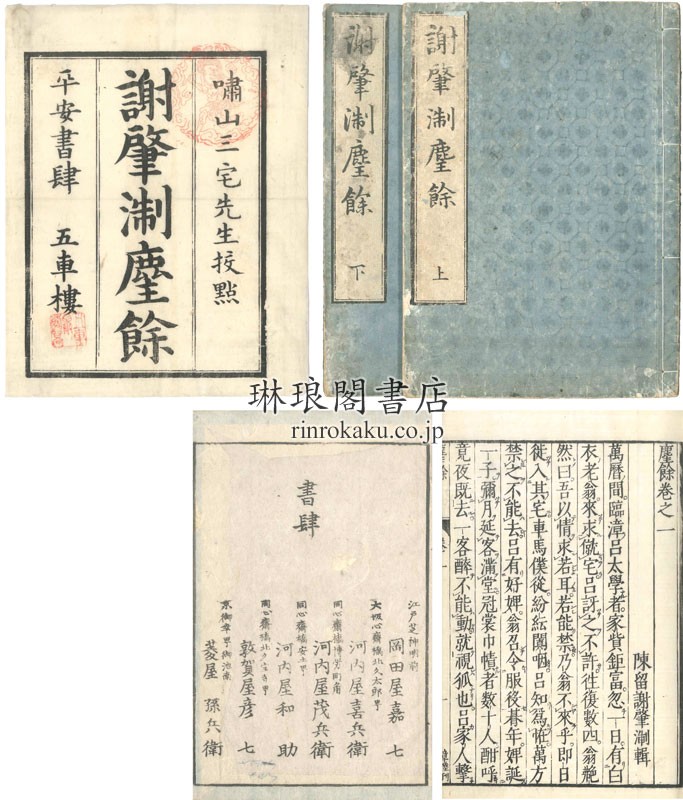 嘯山三宅先生挍點
謝肇淛麈餘
平安書肆 五車樓
謝肇淛麈餘 上
謝肇淛麈餘 下
琳琅閣書店
rinrokaku.co.jp
麈餘卷之一
陳留謝肇淛輯
萬曆間臨漳呂太學者家貲鉅富忽一日有白
衣老翁來求僦宅呂訝之不許往復數四翁艴
然曰吾以情求若耳若能禁乃翁不來乎即日
徙入其宅車馬僕從紛紜闐咽呂知爲恠萬方
禁之不能去呂有好婢翁召令服役朞年婢誕
一子彌月延客滿堂冠裳巾幘者數十人酣呼
竟夜既去一客醉不能動就視狐也呂家人擊
書肆
江戸芝神明前
岡田屋嘉七
大坂心齋橋北久太郎町
河内屋喜兵衛
同心齋橋博労町角
河内屋茂兵衛
同心齋橋安土町
河内屋和助
敦賀屋彦七
京御幸町御池南
菱屋孫兵衛